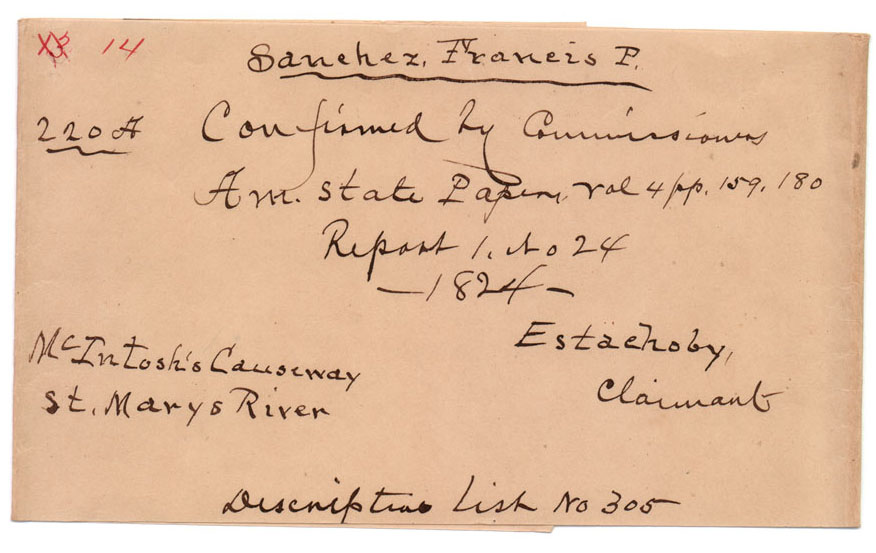 14
Sanchez, Francis P.
220 A Confirmed by Commissioners
Am. State Papers, Vol 4 pp. 159, 180
Report 1, No 24
—1824—
McIntosh's Causeway
St. Marys River
Estachoby,
Claimant
Descriptive List No 305